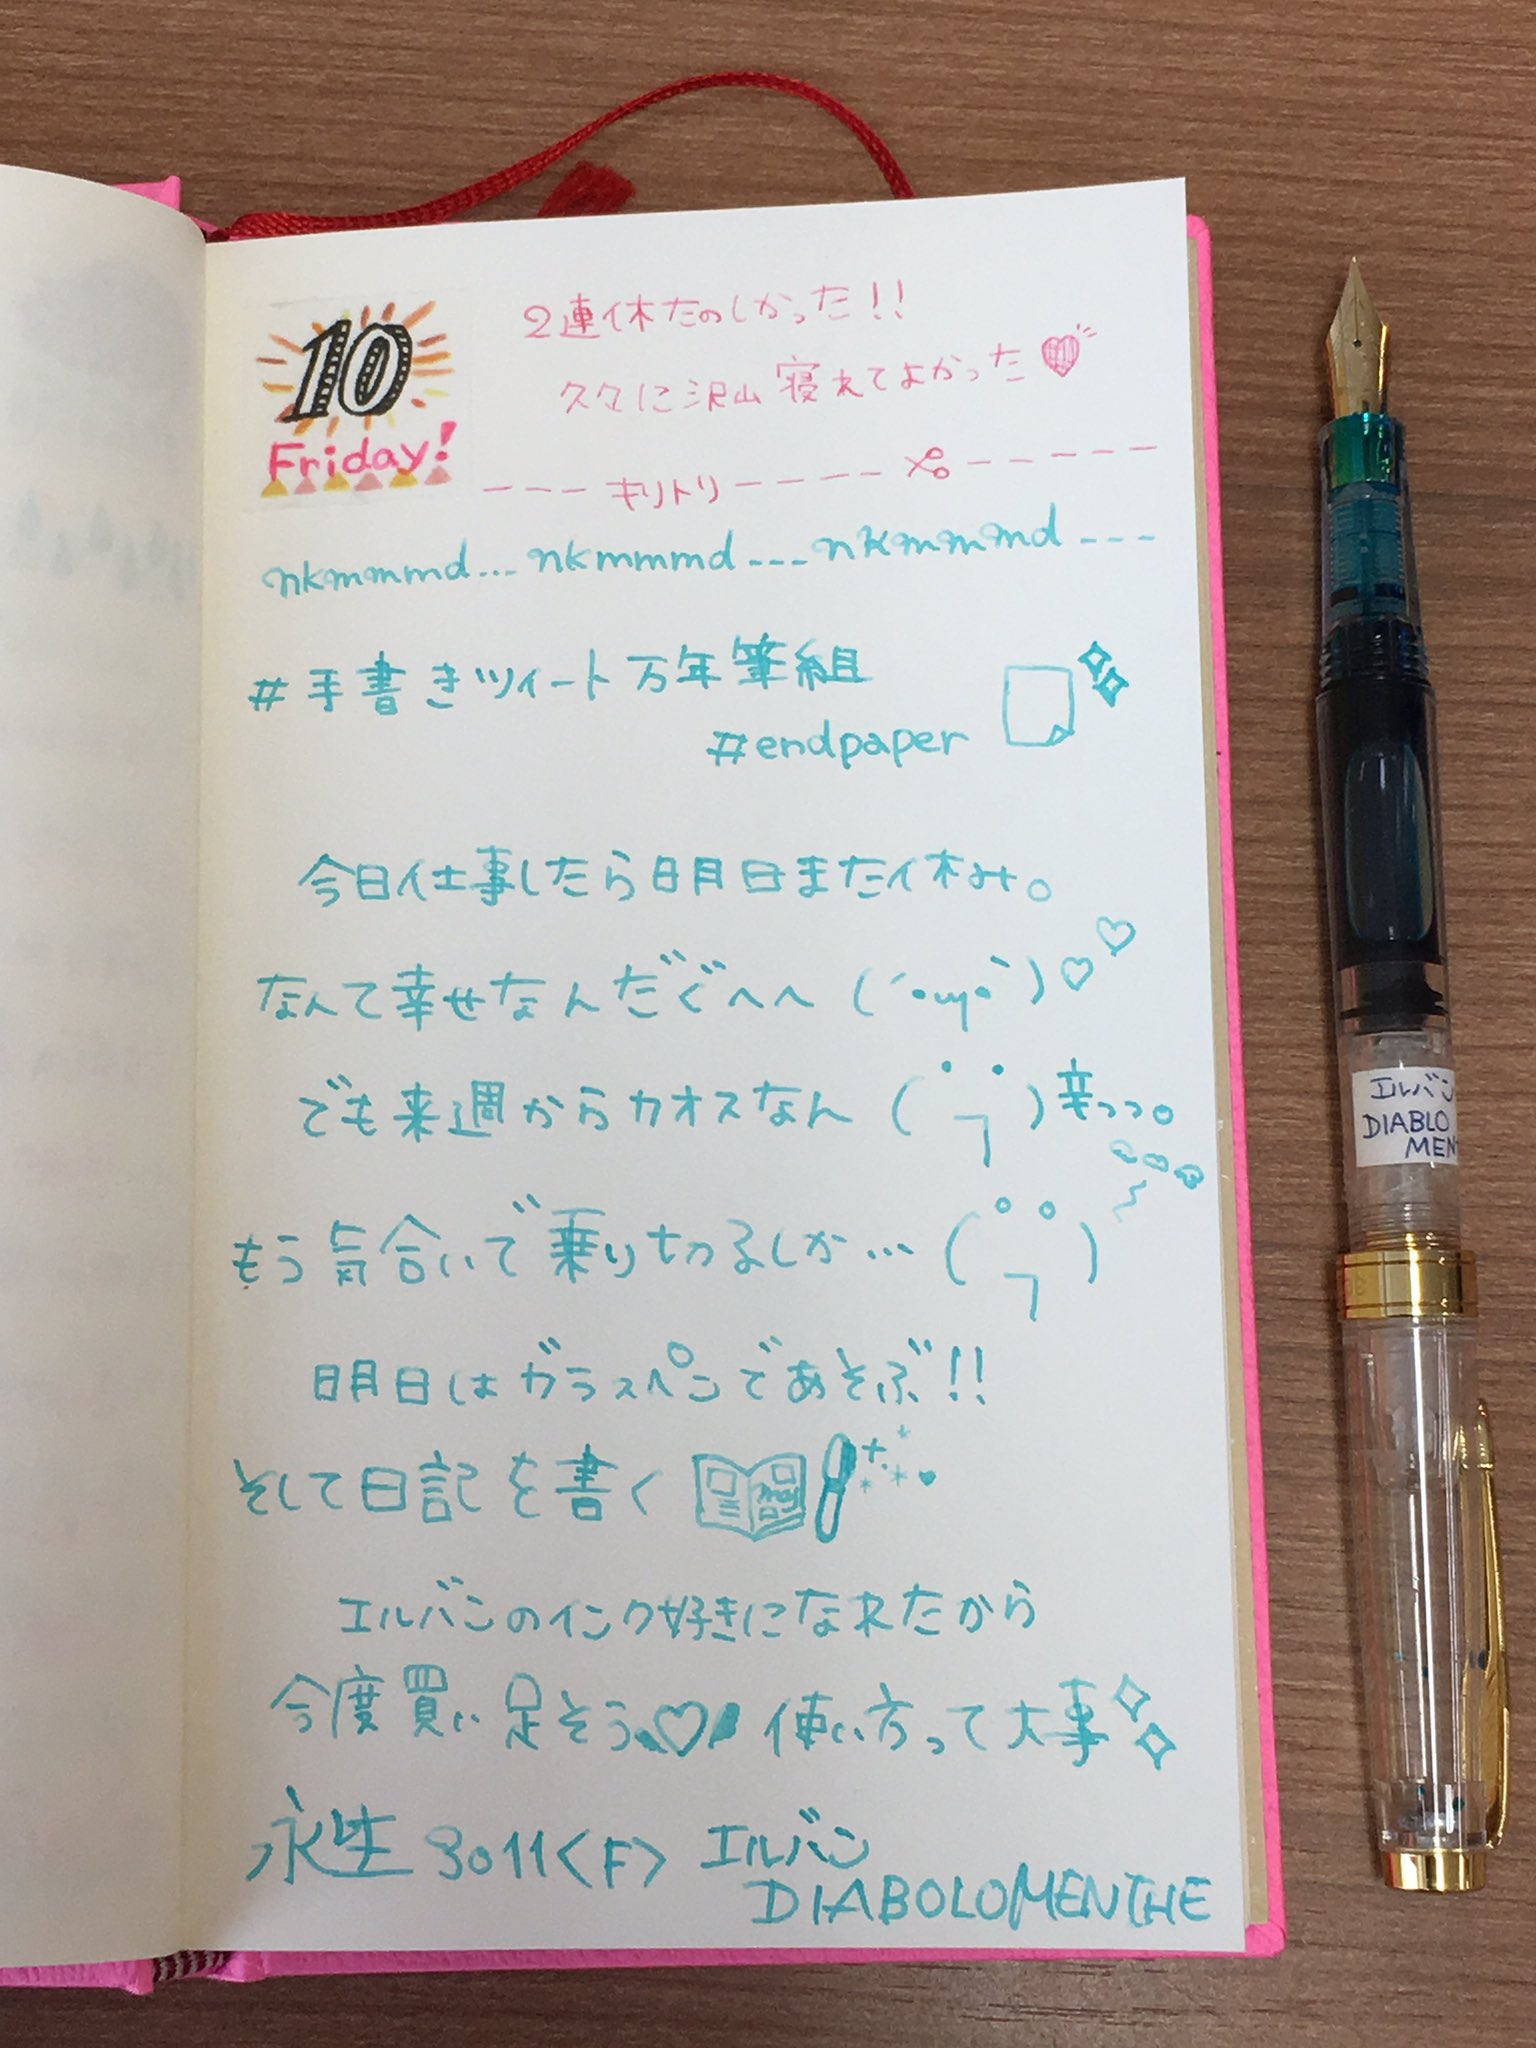 10
Friday!
2連休たのしかった!!
久々に沢山寝れてよかった
キリトリ
nkmmmd... nkmmmd --- nkmmmd ---
#手書きツイート万年筆組
#endpaper
今日仕事したら明日また休み。
なんて幸せなんだぐへへ (´・ษ・`)
でも来週からカオスなん ( ・ ᆨ ・ ) 辛っっ。
もう気合いで乗り切るしか… ( ° ᆨ ° )
明日はガラスペンであそぶ!!
そして日記を書く
エルバンのインク好きになれたから
今度買い足そう 使い方って大事
永生3011<F> エルバン
DIABOLOMENTHE
エルバン
DIABLO
MEN